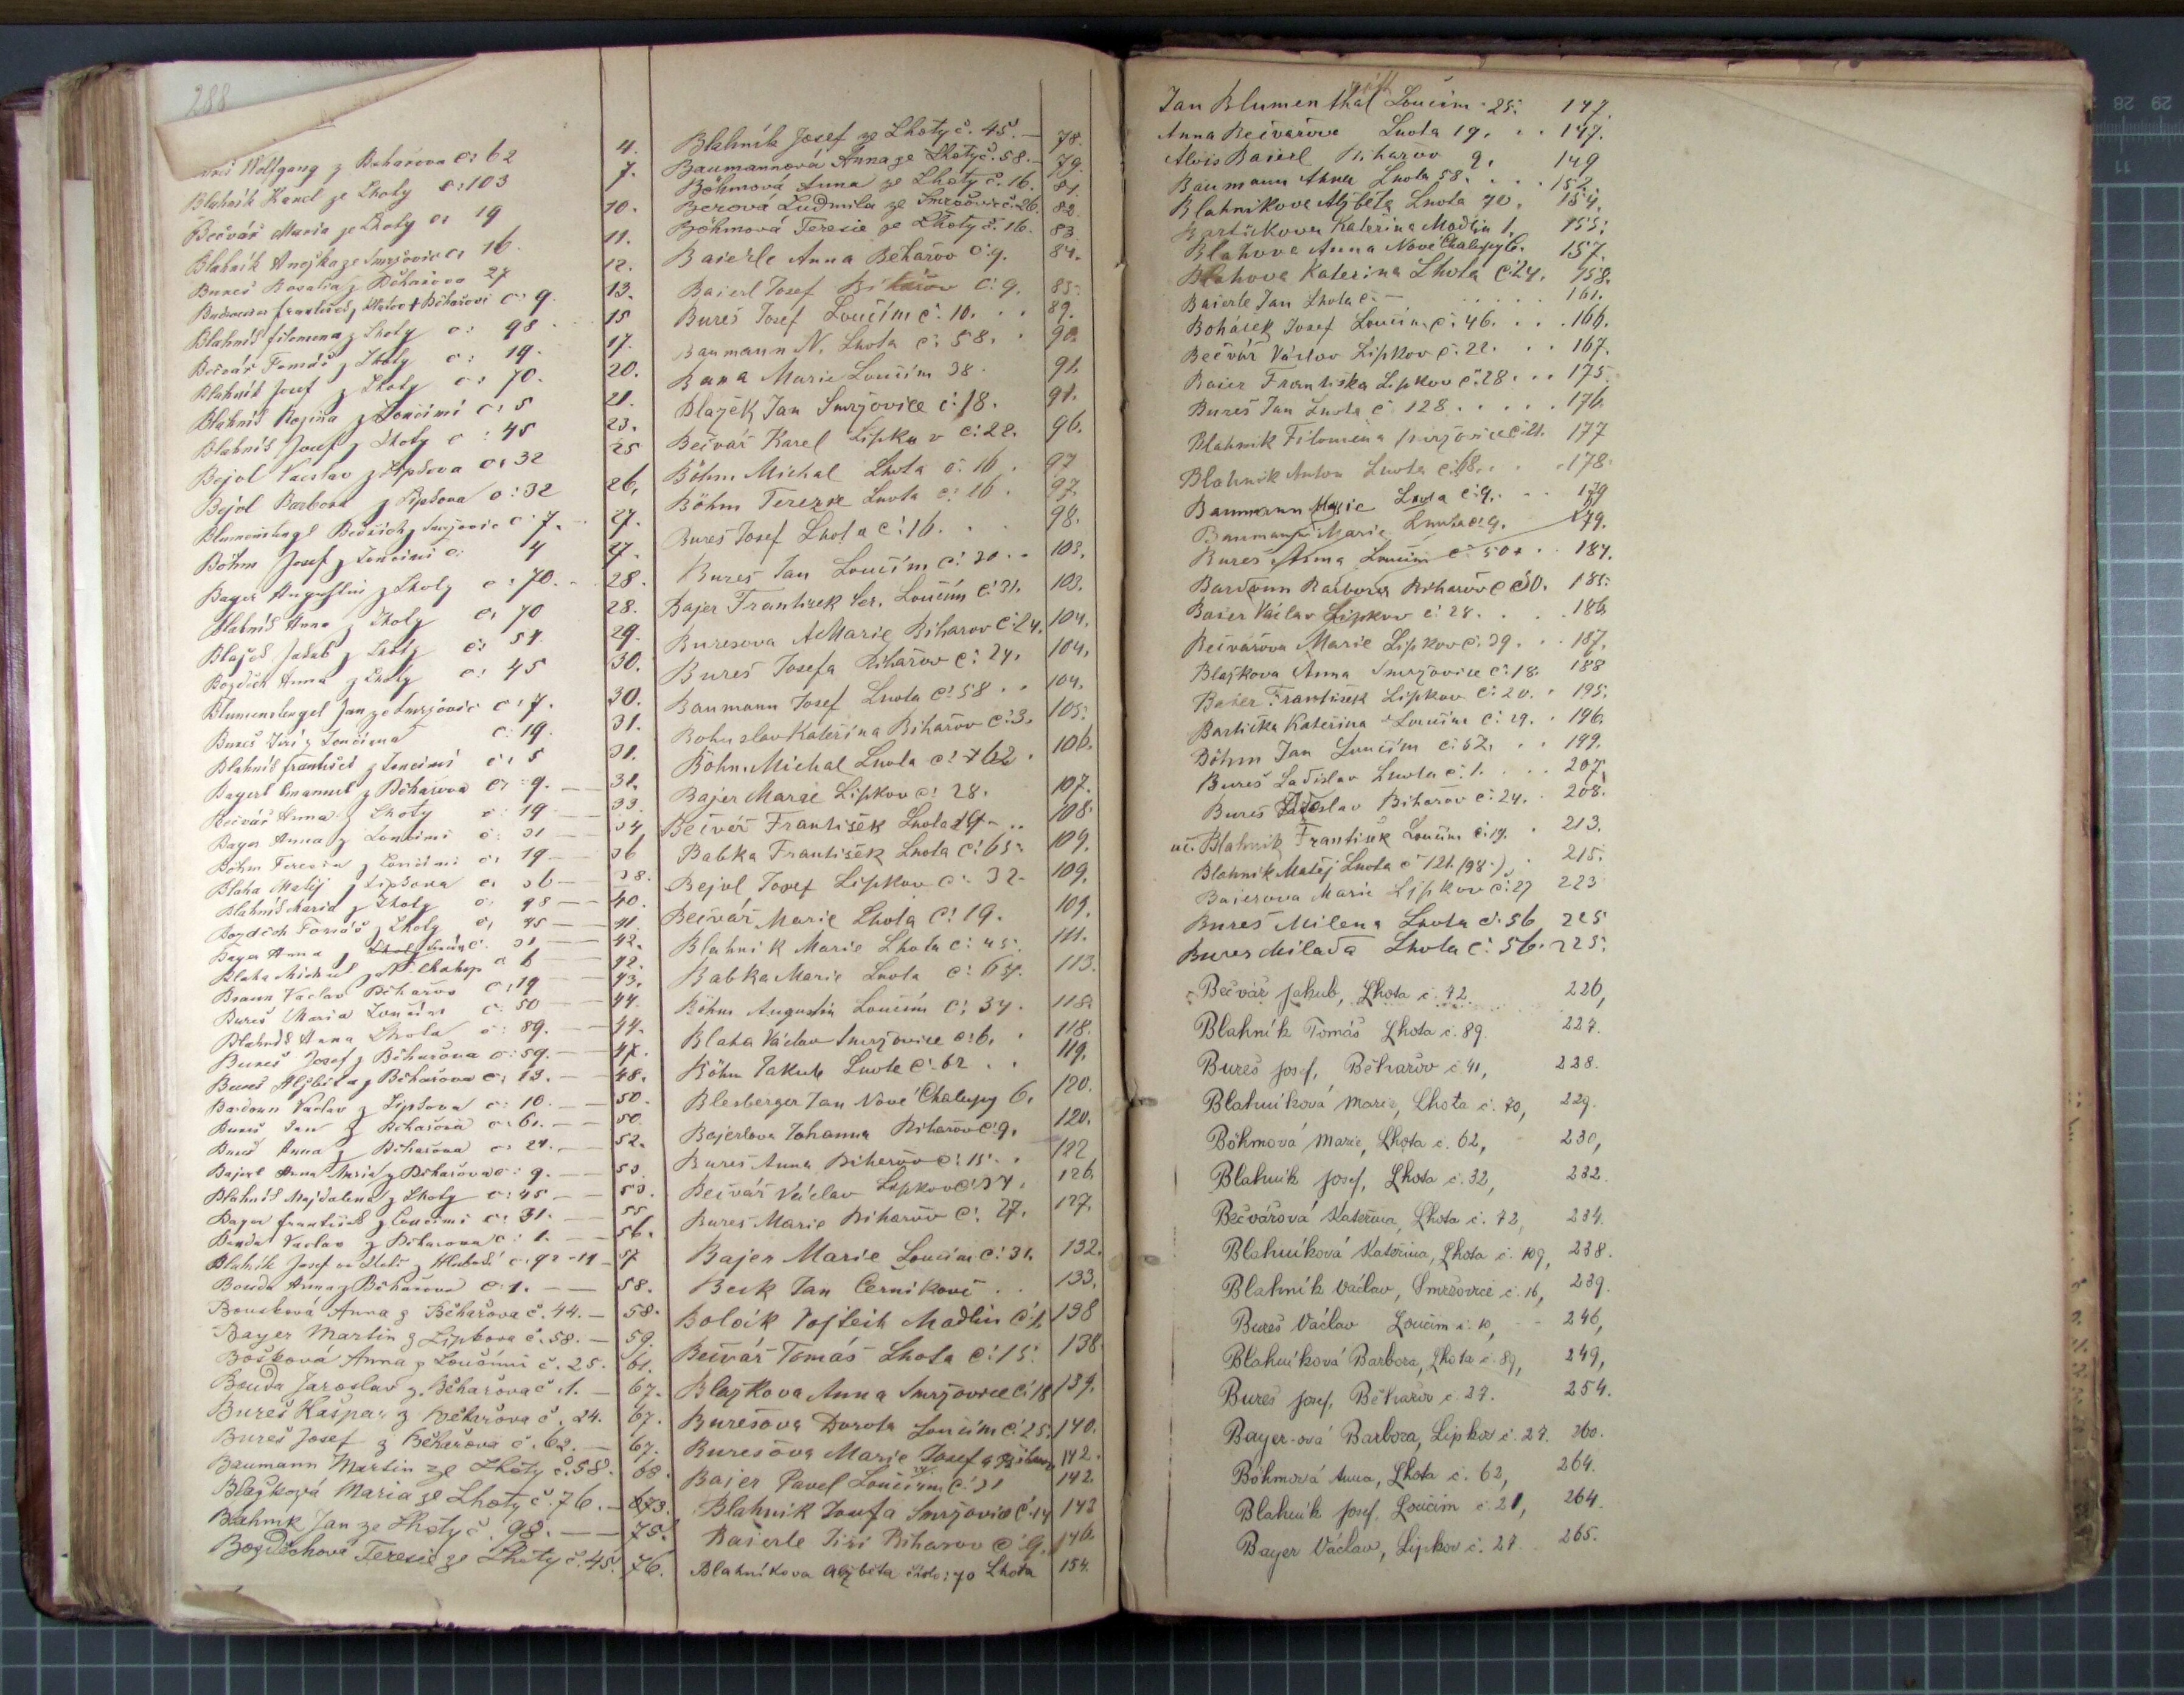 288
Wolfgang z Běhařova č: 62 4.
Blahník Karel ze Lhoty č: 103 7.
Bečvář Maria ze Lhoty č: 19 10.
Blahník Anežka ze Smržovic č: 16. 11.
Bureš Rosalia z Běhařova 27 12.
František Běhařově č: 9. 13.
Blahník Filomena z Lhoty č: 98 15
Bečvář Tomáš z Lhoty č: 19. 17.
Blahník Josef z Lhoty č: 70. 20.
Blahník Rozina z Loučimi č: 5 21.
Blahník Josef z Lhoty č: 45 23.
Bejvl Vácslav z Lipkova č: 32 25
Bejvl Barbora z Lipkova č: 32 26,
Blumenstengl Bedřich z Smržovic č: 7. 27.
Böhm Josef z Loučimi č: 4 27.
Bayer Augustin z Lhoty č: 70. 28.
Blahník Anna z Lhoty č: 70 28.
Blažek Jakub z Lhoty č: 54. 29.
Bozděch Anna z Lhoty č: 45 30.
Blumenstengel Jan ze Smržovic č: 7. 30.
Bureš Jiří z Loučima č: 19. 31.
Blahník František z Loučimi č: 5 31.
Bayerl Emanuel z Běhařova č: 9. 32.
Bečvář Anna z Lhoty č: 19 33.
Bayer Anna z Loučimi č: 31 34,
Böhm Terezia z Loučimi č: 19 36
Blaha Matěj z Lipkova č: 36 38.
Blahník Maria z Lhoty č: 98 40.
Bozděch Tomáš z Lhoty č: 45 41
Bayer Anna z č. 31 42.
Blaha Michael z N. Chalup č 6 42.
Braun Václav Běhařov č: 19 43.
Bureš Maria Loučim č: 50 44.
Blahník Anna Lhota č: 89. 44.
Bureš Josef z Běhařova č: 59. 47.
Bureš Alžběta z Běhařova č: 13. 48.
Bardoun Václav z Lipkova č: 10. 50.
Bureš Jan z Běhařova č: 61. 50
Bureš Anna z Běhařova č: 24. 52.
Bajerl Anna Maria z Běhařova č: 9. 53.
Blahník Majdalena z Lhoty č: 45 53.
Bayer František z Loučimi č: 31. 55
Bouda Václav z Běhařova č: 1. 56.
Blahník Josef 57
Bouda Anna z Běhařova č: 1. 58.
Boušková Anna z Běhařova č. 44. 58.
Bayer Martin z Lipkova č. 58. 59.
Bošková Anna z Loučimi č. 25. 61.
Bouda Jaroslav z Běhařova č. 1. 67.
Bureš Kašpar z Běhařova č. 24. 67.
Bureš Josef z Běhařova č. 62. 67.
Baumann Martin ze Lhoty č. 58. 68.
Blažková Maria ze Lhoty č. 76. 73.
Blahník Jan ze Lhoty č. 98. 75.
Bozděchová Terezie ze Lhoty č. 45. 76.
Blahník Josef ze Lhoty č. 45. 78.
Baumannová Anna ze Lhoty č. 58. 79.
Böhmová Anna ze Lhoty č. 16. 81.
Berová Ludmila ze Smržovic č. 26. 82.
Böhmová Terezie ze Lhoty č. 16. 83.
Baierle Anna Běhařov č: 9. 84.
Baierl Josef Běhařov č: 9. 85.
Bureš Josef Loučim č: 10. 89.
Baumann N. Lhota č: 58. 90.
Bana Marie Loučim 38. 91.
Blažek Jan Smržovice č: 18. 91.
Bečvář Karel Lipkov č: 22. 96.
Böhm Michal Lhota č: 16. 97
Böhm Terezie Lhota č: 16. 97.
Bureš Josef Lhota č: 16. 98.
Bureš Jan Loučim č: 20. 103.
Bajer Frantisek Loučim č: 31. 103.
Buresova A Marie Biharov č: 24. 104.
Bureš Josefa Bihařov č: 24. 104.
Baumann Josef Lhota č: 58 104.
Bohuslav Kateřina Bihařov č: 3. 105.
Böhm Michal Lhota č: 62. 106.
Bajer Marie Lipkov č: 28. 107.
Bečvář František Lhota 19 108.
Babka František Lhota č: 65. 109.
Bejvl Josef Lipkov č. 32. 109.
Bečvář Marie Lhota č: 19. 109.
Blahnik Marie Lhota č: 45. 111.
Babka Marie Lhota č: 65. 113.
Böhm Augustin Loučim č: 34. 118.
Blaha Václav Smržovice č: 6. 118.
Böhm Jakub Lhota č: 62 119.
Blesberger Jan Nové Chalupy 6. 120.
Bejerlova Johanna Bihařov č: 9. 120.
Bureš Anna Bihařov č: 15. 122
Bečvář Václav Lipkov č: 37. 126
Bures Marie Bihařov č: 27. 127.
Bajer Marie Loučim č: 31. 132.
Beck Jan Černíkově 133.
Bolcik Vojtěch Madlín č: 2 138
Bečvář Tomáš Lhota č: 15. 138.
Blažkova Anna Smržovice č: 18 139.
Burešova Dorota Loučim č: 25. 140.
Burešova Marie Josef z 142.
Bajer Pavel Loučim č: 31 142.
Blahník Josefa Smržovice č: 14 143
Baierle Jiří Biharov č: 9. 146.
Blahníkova Alžběta číslo: 70 Lhota 154.
Jan Blumenthal Loučim 25. 147.
Anna Bečvařova Lhota 19. 147.
Alois Baierl Bihařov 9. 149
Baumann Anna Lhota 58. 152.
Blahníkova Alžběta Lhota 70. 154.
Bartičkova Kateřina Madlín 1. 155.
Blahova Anna Nové Chalupy 6. 157.
Blahova Kateřina Lhota č: 24. 158.
Baierle Jan Lhota č: — 161.
Boháček Josef Loučim č: 46. 166.
Bečvář Václav Lipkov č: 22. 167.
Baier Františka Lipkov č: 28. 175.
Bureš Jan Lhota č 128. 176.
Blahník Filomena Smržovice č: 21. 177
Blahník Anton Lhota č: 18. 178.
Baumann Marie Lhota č: 9. 179
Baumann Marie Lhota č: 9. 179.
Bureš Anna Loučim č: 50. 184.
Bardoun Barbora Bihařov č 30. 185.
Baier Václav Lipkov č: 28. 186
Bečvářova Marie Lipkov č: 39. 187.
Blažkova Anna Smržovice č: 18. 188
Baier František Lipkov č: 20. 195.
Bartička Kateřina Loučim č: 29. 196.
Böhm Jan Loučim č: 52. 199.
Bureš Ladislav Lhota č: 1. 207.
Bureš Biharov č: 24. 208.
Blahník František Loučim č: 19. 213.
Blahník Matěj Lhota č 121. (98.) 215.
Baierova Marie Lipkov č: 27 223
Bureš Milena Lhota č: 56 225
Bureš Milada Lhota č: 56. 225.
Bečvář Jakub, Lhota č. 72. 226,
Blahník Tomáš Lhota č. 89. 227.
Bureš Josef, Běhařov č. 41, 228.
Blahníková Marie, Lhota č. 70, 229.
Böhmová Marie, Lhota č. 62, 230,
Blahník Josef, Lhota č. 32, 232.
Bečvářová Kateřina, Lhota č. 72, 234.
Blahníková Kateřina, Lhota č. 109, 238.
Blahník Václav, Smržovice č. 16, 239.
Bureš Václav Loučim č. 10, 246,
Blahníková Barbora, Lhota č. 89, 249,
Bureš Josef, Běhařov č. 27. 254.
Bayer-ová Barbora, Lipkov č. 27. 260.
Böhmová Anna, Lhota č. 62, 264.
Blahník Josef, Loučim č. 21, 264.
Bayer Václav, Lipkov č. 27. 265.